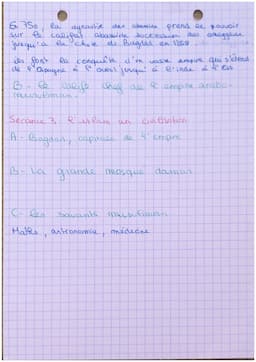 En 750, la dynastie des abassides prend le pouvoir
sur le califat abasside succession des omeyyades
jusqu'a la chute de Bagdad en 1258.
ils font la conquête d'un vaste empire qui s'étend
de l'Espagne à l'ouest jusqu'à l'inde à l'est
B - le calife chef de l'empire arabo-
musulman.
Seconde 3. l'islam un civilisation
A - Bagdad, capitale de l'empire
B - La grande mosquée damas
C - Les savants musulmans
Maths, astronomie, médecine